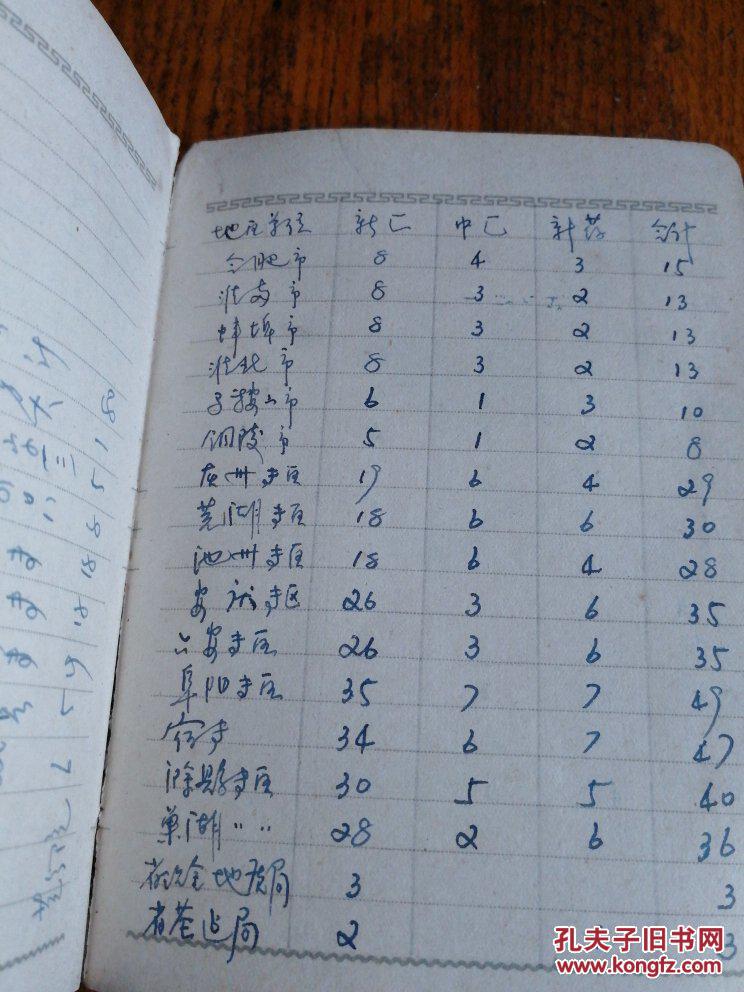 地区单位 新匚 中匚 新药 合计
合肥市 8 4 3 15
淮南市 8 3 2 13
蚌埠市 8 3 2 13
淮北市 8 3 2 13
马鞍山市 6 1 3 10
铜陵市 5 1 2 8
19 6 4 29
芜湖专区 18 6 6 30
池州专区 18 6 4 28
安庆专区 26 3 6 35
六安专区 26 3 6 35
阜阳专区 35 7 7 49
宿专 34 6 7 47
滁县专区 30 5 5 40
巢湖〃〃 28 2 6 36
省冶金地质局 3 3
省 局 2 3
孔夫子旧书网
www.kongfz.com